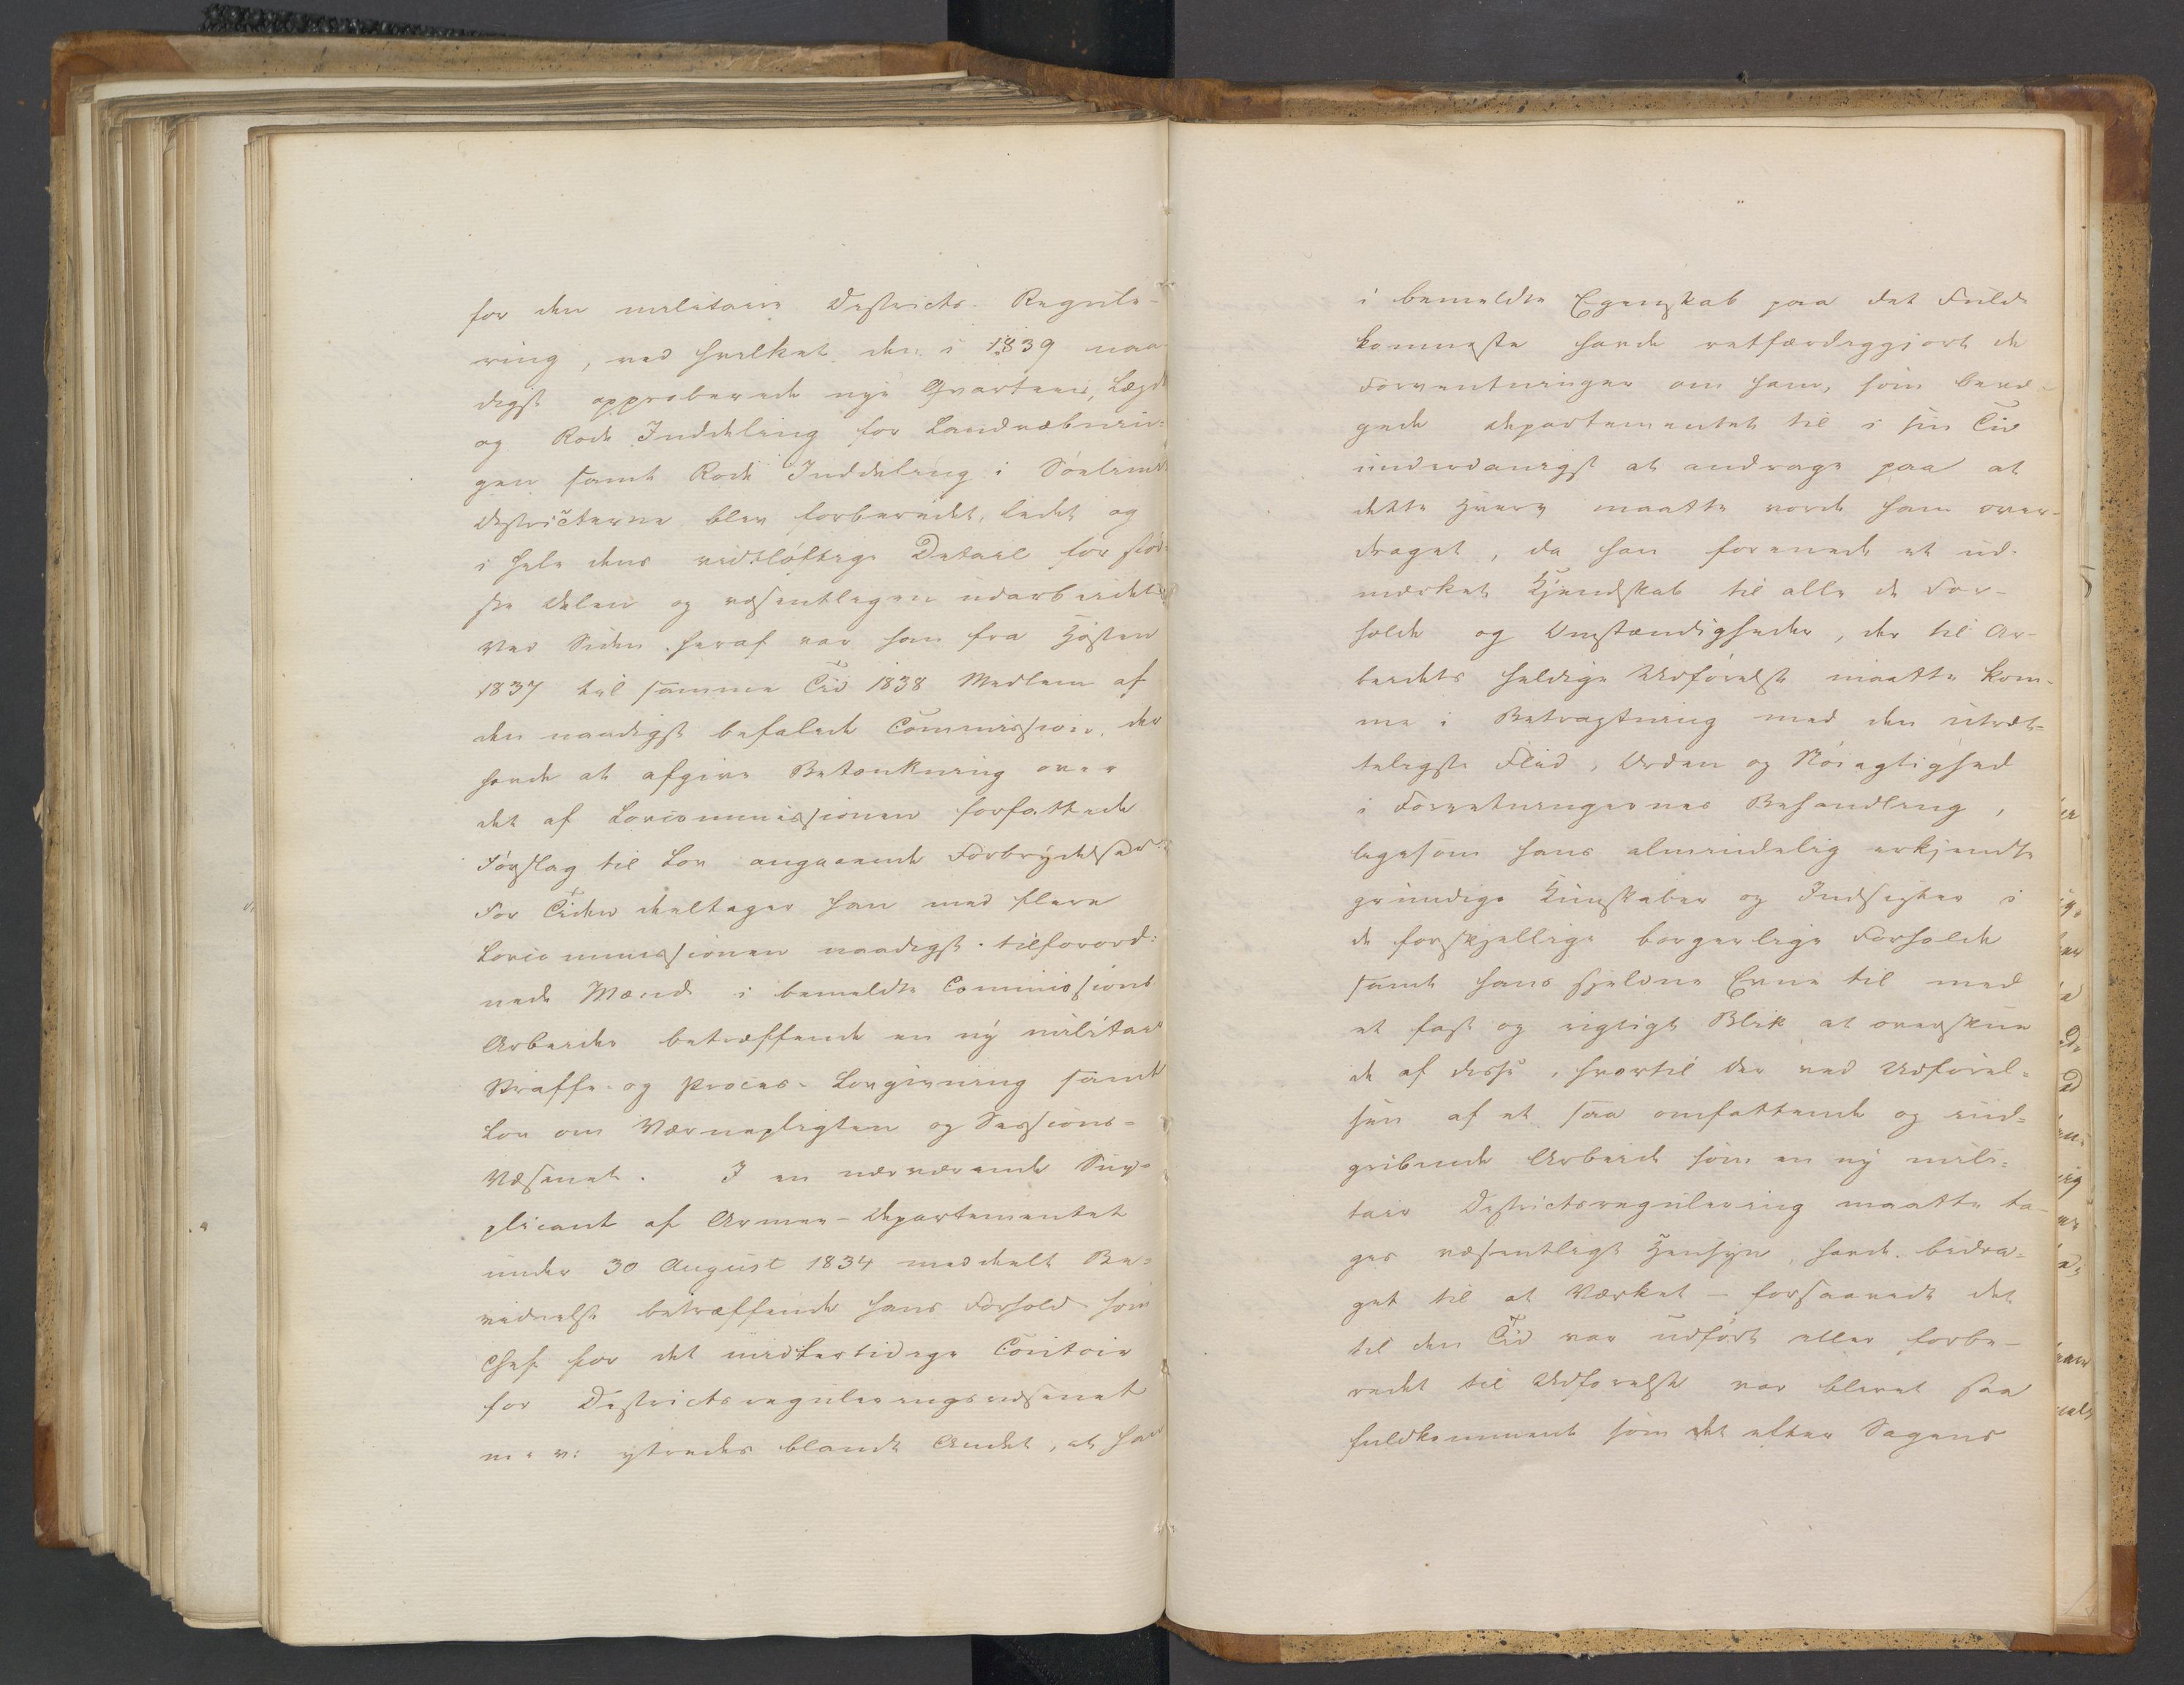 for den militaire Districts-Regule-
ring, ved hvilket den i 1839 naa
digst approberede nye Qvarteer, Lægds
og Rode Inddeling for Landvæbnin-
gen samt Rode Inddeling i Sölimits
Districterne blev forberedet, ledet og
i hele dens vidtløftige Detail for stör-
ste Delen og væsentligen udarbeidet
Ved Siden heraf var han fra Hösten
1837 til samme Tid 1838 Medlem af
den naadigst befalede Commission, der
havde at afgive Betænkning over
det af Lovcommissionen forfattede
Forslag til Lov angaaende Forbrydelser
For Tiden deeltager han med flere
Lovcommissionen naadigst tilforord-
nede Mænd i bemeldte Commissions
Arbeider betræffende en ny militair
Straffe- og Proces-Lovgivning samt
Lov om Værnepligten og Sessions-
Væsenet. I en nærværende Sup-
plicant af Armee-Departementet
under 30 August 1834 meddeelt Be-
vidnelse betræffende hans Forhold som
Chef for det midlertidige Contoir
for Districtsreguleringsvæsenet
m. v. ytredes blandt Andet, at han
i bemeldte Egenskab paa det Fuld-
komneste havde retfærdiggjort de
Forventninger om ham, som bevæ-
gede Departementet til i sin Tid
underdanigst at andrage paa at
dette Hverv maatte vorde ham over-
draget, da han forenede et ud-
mærket Kjendskab til alle de For-
holde og Omstændigheder, der til Ar-
beidets heldige Udförelse maatte kom-
me i Betragtning med den utræt-
teligste Flid, Orden og Nöiagtighed
i Forretningernes Behandling,
ligesom hans almindelig erkjendte
grundige Kundskaber og Indsigter i
de forskjellige borgerlige Forholde
samt hans sjeldne Evne til med
et fast og rigtigt Blik at overskue
de af disse, hvortil der ved Udförel-
sen af et saa omfattende og ind-
gribende Arbeide som en ny mili-
tair Districtsregulering maatte ta-
ges væsentligt Hensyn, havde bidra-
get til at Værket - forsaavidt det
til den Tid var udfört eller forbe-
redet til Udförelse var blevet saa
fuldkomment som det efter Sagens